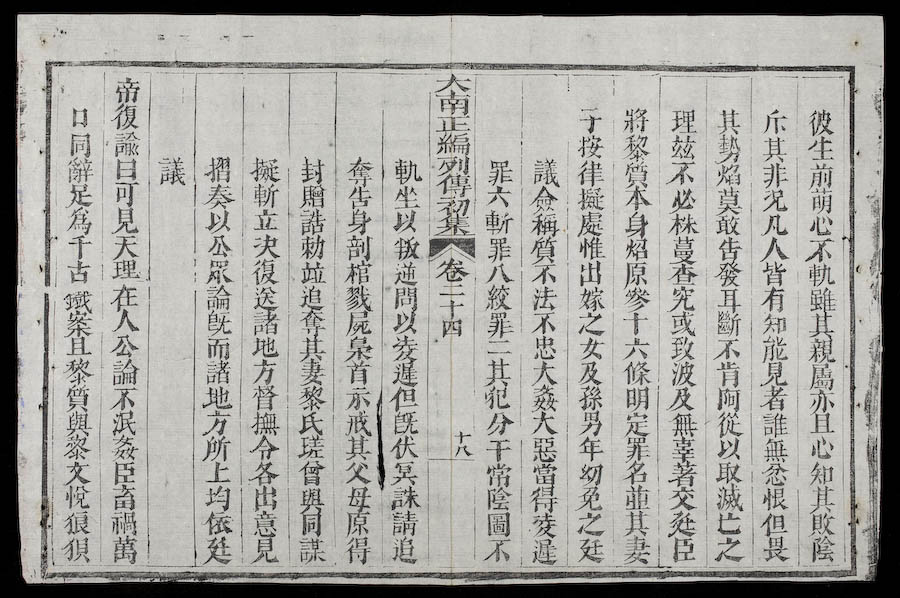 彼生前萌心不軌雖其親屬亦且心知其敗陰
斥其非況凡人皆有知能見者誰無忿恨但畏
其勢焰莫敢告發耳斷不肯阿從以取滅亡之
理玆不必株蔓查究或致波及無辜著交廷臣
將黎質本身焰原參十六條明定罪名並其妻
子按律擬處惟出嫁之女及孫男年幼免之廷
議僉稱質不法不忠大姦大惡當得凌遲
罪六斬罪八絞罪二其犯分干常陰圖不
大南正編列傳初集
卷二十四
十八
軌坐以叛逆問以凌遲但旣伏冥誅請追
奪告身剖棺戮屍梟首示戒其父母原得
封贈誥勅並追奪其妻黎氏瑳曾與同謀
擬斬立决復送諸地方督撫令各出意見
摺奏以公眾論旣而諸地方所上均依廷
議
帝復諭曰可見天理在人公論不泯姦臣畜禍萬
口同辭足爲千古鐵案且黎質與黎文悅狼狽